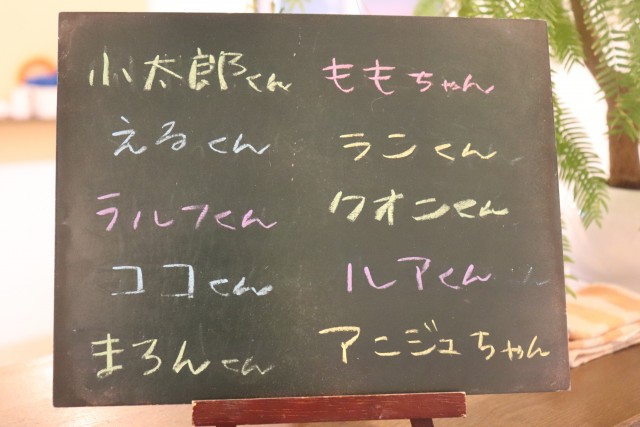 小太郎くん ももちゃん
えるくん ランくん
ラルフくん クオンくん
ココくん ルアくん
まろんくん アニジュちゃん